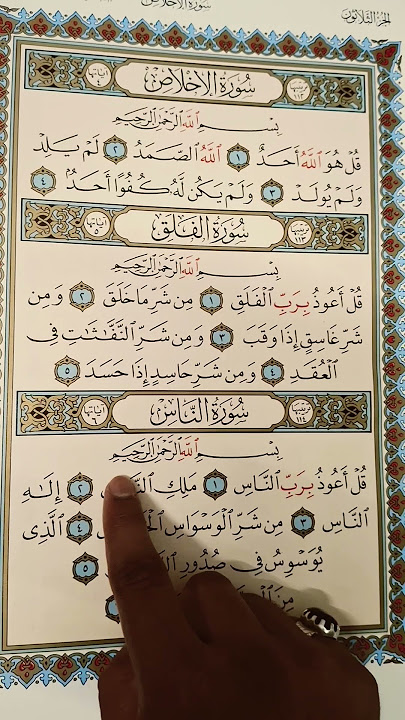 سُورَةُ الإِخْلَاصِ
الجُزْءُ الثَّلَاثُونَ
آيَاتُهَا ٤ سُورَةُ الإِخْلَاصِ
بِسْمِ اللَّهِ الرَّحْمَٰنِ الرَّحِيمِ
قُلْ هُوَ ٱللَّهُ أَحَدٌ ١ ٱللَّهُ ٱلصَّمَدُ ٢ لَمْ يَلِدْ
وَلَمْ يُولَدْ ٣ وَلَمْ يَكُن لَّهُۥ كُفُوًا أَحَدٌۢ ٤
سُورَةُ الفَلَقِ ١١٣
بِسْمِ اللَّهِ الرَّحْمَٰنِ الرَّحِيمِ
قُلْ أَعُوذُ بِرَبِّ ٱلْفَلَقِ ١ مِن شَرِّ مَا خَلَقَ ٢ وَمِن
شَرِّ غَاسِقٍ إِذَا وَقَبَ ٣ وَمِن شَرِّ ٱلنَّفَّٰثَٰتِ فِى
ٱلْعُقَدِ ٤ وَمِن شَرِّ حَاسِدٍ إِذَا حَسَدَ ٥
١١٤ سُورَةُ النَّاسِ آيَاتُهَا ٦
بِسْمِ اللَّهِ الرَّحْمَٰنِ الرَّحِيمِ
قُلْ أَعُوذُ بِرَبِّ ٱلنَّاسِ ١ مَلِكِ ٢ إِلَٰهِ
ٱلنَّاسِ ٣ مِن شَرِّ ٱلْوَسْوَاسِ ٤ ٱلَّذِى
يُوَسْوِسُ فِى صُدُورِ ٥
مِنَ